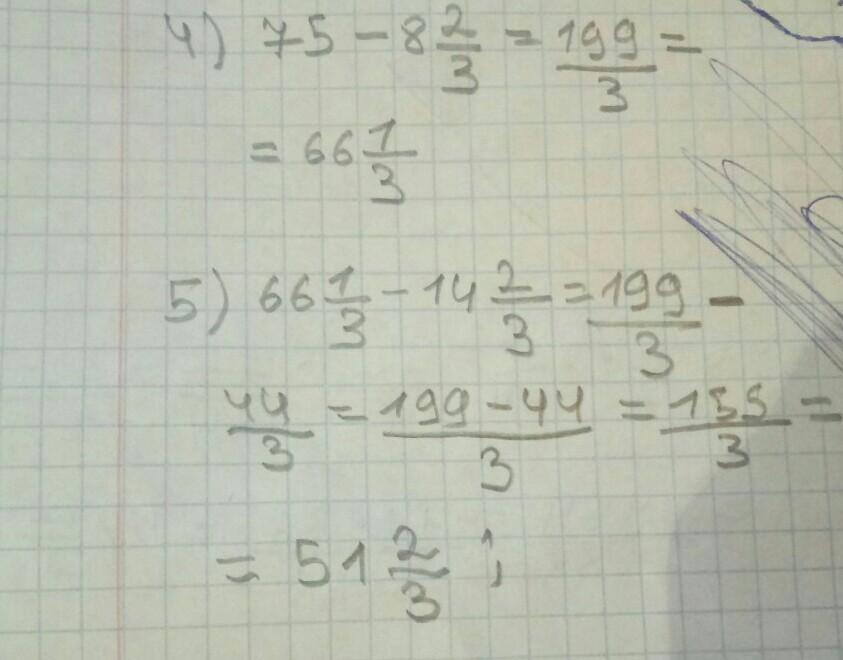 4) 75 - 8 2/3 = 199/3 =
= 66 1/3
5) 66 1/3 - 14 2/3 = 199/3 -
44/3 = 199-44/3 = 155/3 =
= 51 2/3 ;